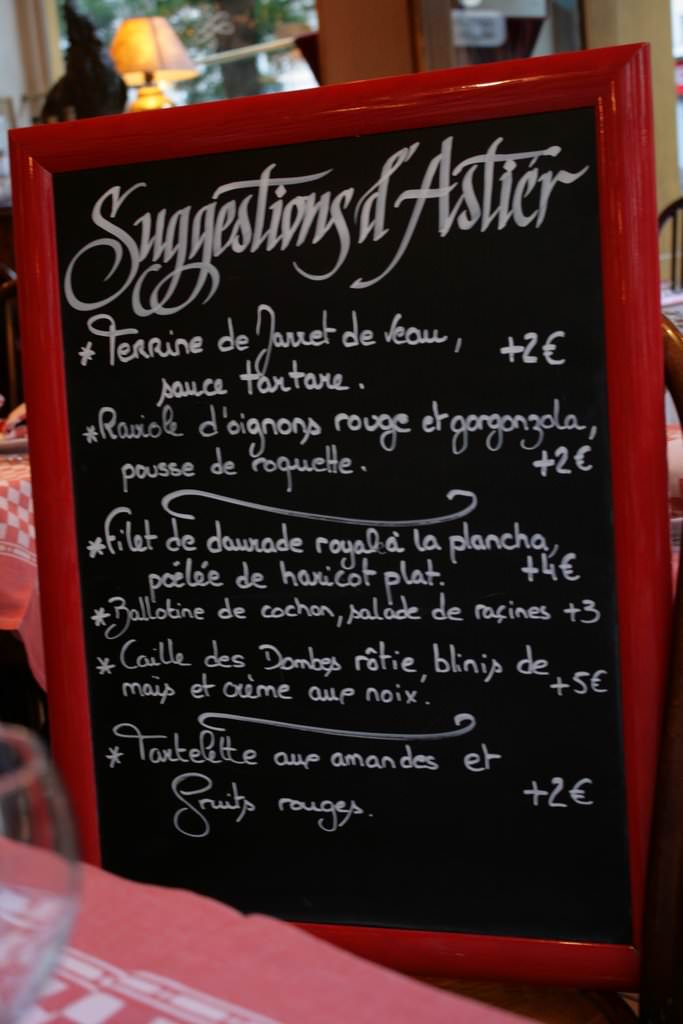 Suggestions d'Astier
* Terrine de Jarret de veau, +2€
sauce tartare.
* Raviole d'oignons rouge et gorgonzola,
pousse de roquette. +2€
* Filet de daurade royale à la plancha,
poêlée de haricot plat. +4€
* Ballotine de cochon, salade de racines +3
* Caille des Dombes rôtie, blinis de
maïs et crème aux noix. +5€
* Tartelette aux amandes et
fruits rouges. +2€